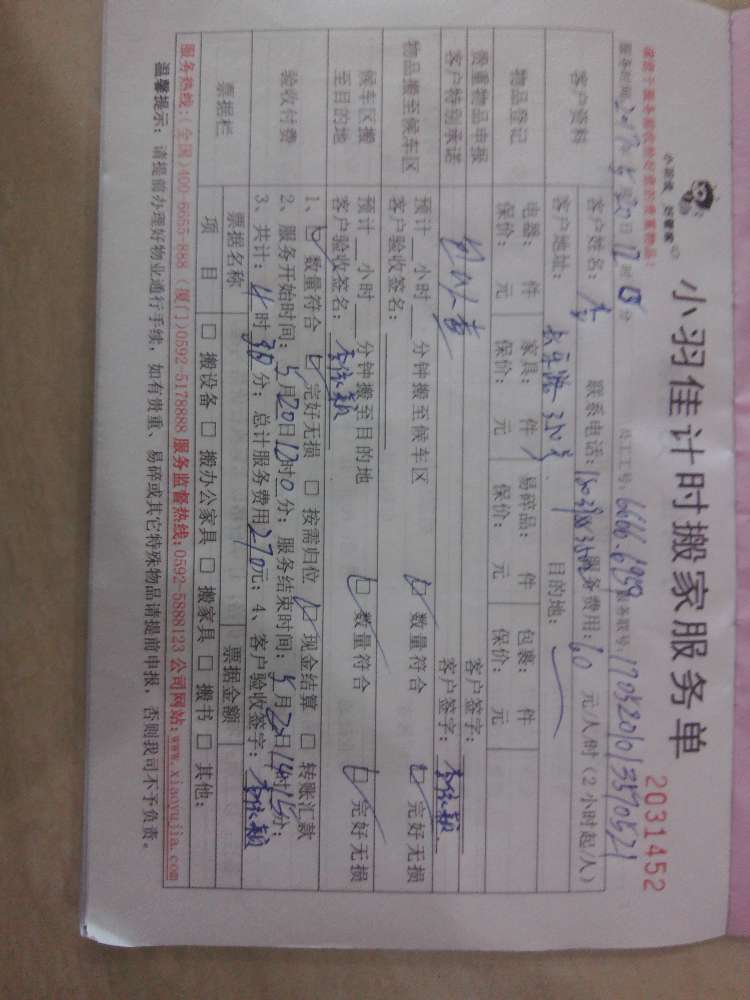 小羽佳 好管家
小羽佳计时搬家服务单
2031452
员工工号：6666.6959 服务联号：1705201013570521
服务时间2017年5月20日12时15分
客户资料
客户姓名：李 联系电话： 服务费用：60元/人时(2小时起/人)
客户地址： 目的地：
物品登记
电器： 件 家具： 件 易碎品： 件 包裹： 件
保价： 元 保价： 元 保价： 元 保价： 元
贵重物品申报 客户签字：
客户特别承诺 客户签字：
物品搬至候车区
预计__小时__分钟搬至候车区 数量符合 完好无损
客户验收签名：
候车区搬至目的地
预计__小时__分钟搬至目的地 数量符合 完好无损
客户验收签名：
验收付费
1、数量符合 完好无损 □ 按需归位 现金结算 □ 转账汇款
2、服务开始时间：5月20日12时0分；服务结束时间：5月20日14时15分；
3、共计：4时30分；总计服务费用270元；4、客户验收签字：
票据栏
票据名称 票据金额
项目 □ 搬设备 □ 搬办公家具 □ 搬家具 □ 搬书 □ 其他：
服务热线：(全国)400-6655-888 (厦门)0592-5178888 服务监督热线：0592-5888123 公司网站：www.xiaoyujia.com
温馨提示：请提前办理好物业通行手续，如有贵重、易碎或其它特殊物品请提前申报，否则我司不予负责。